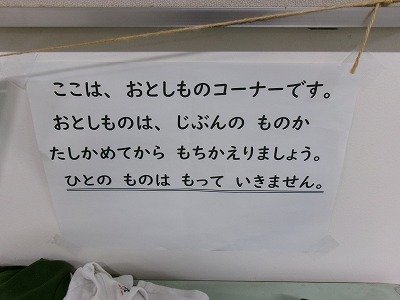 ここは、おとしものコーナーです。
おとしものは、じぶんの ものか
たしかめてから もちかえりましょう。
ひとの ものは もって いきません。